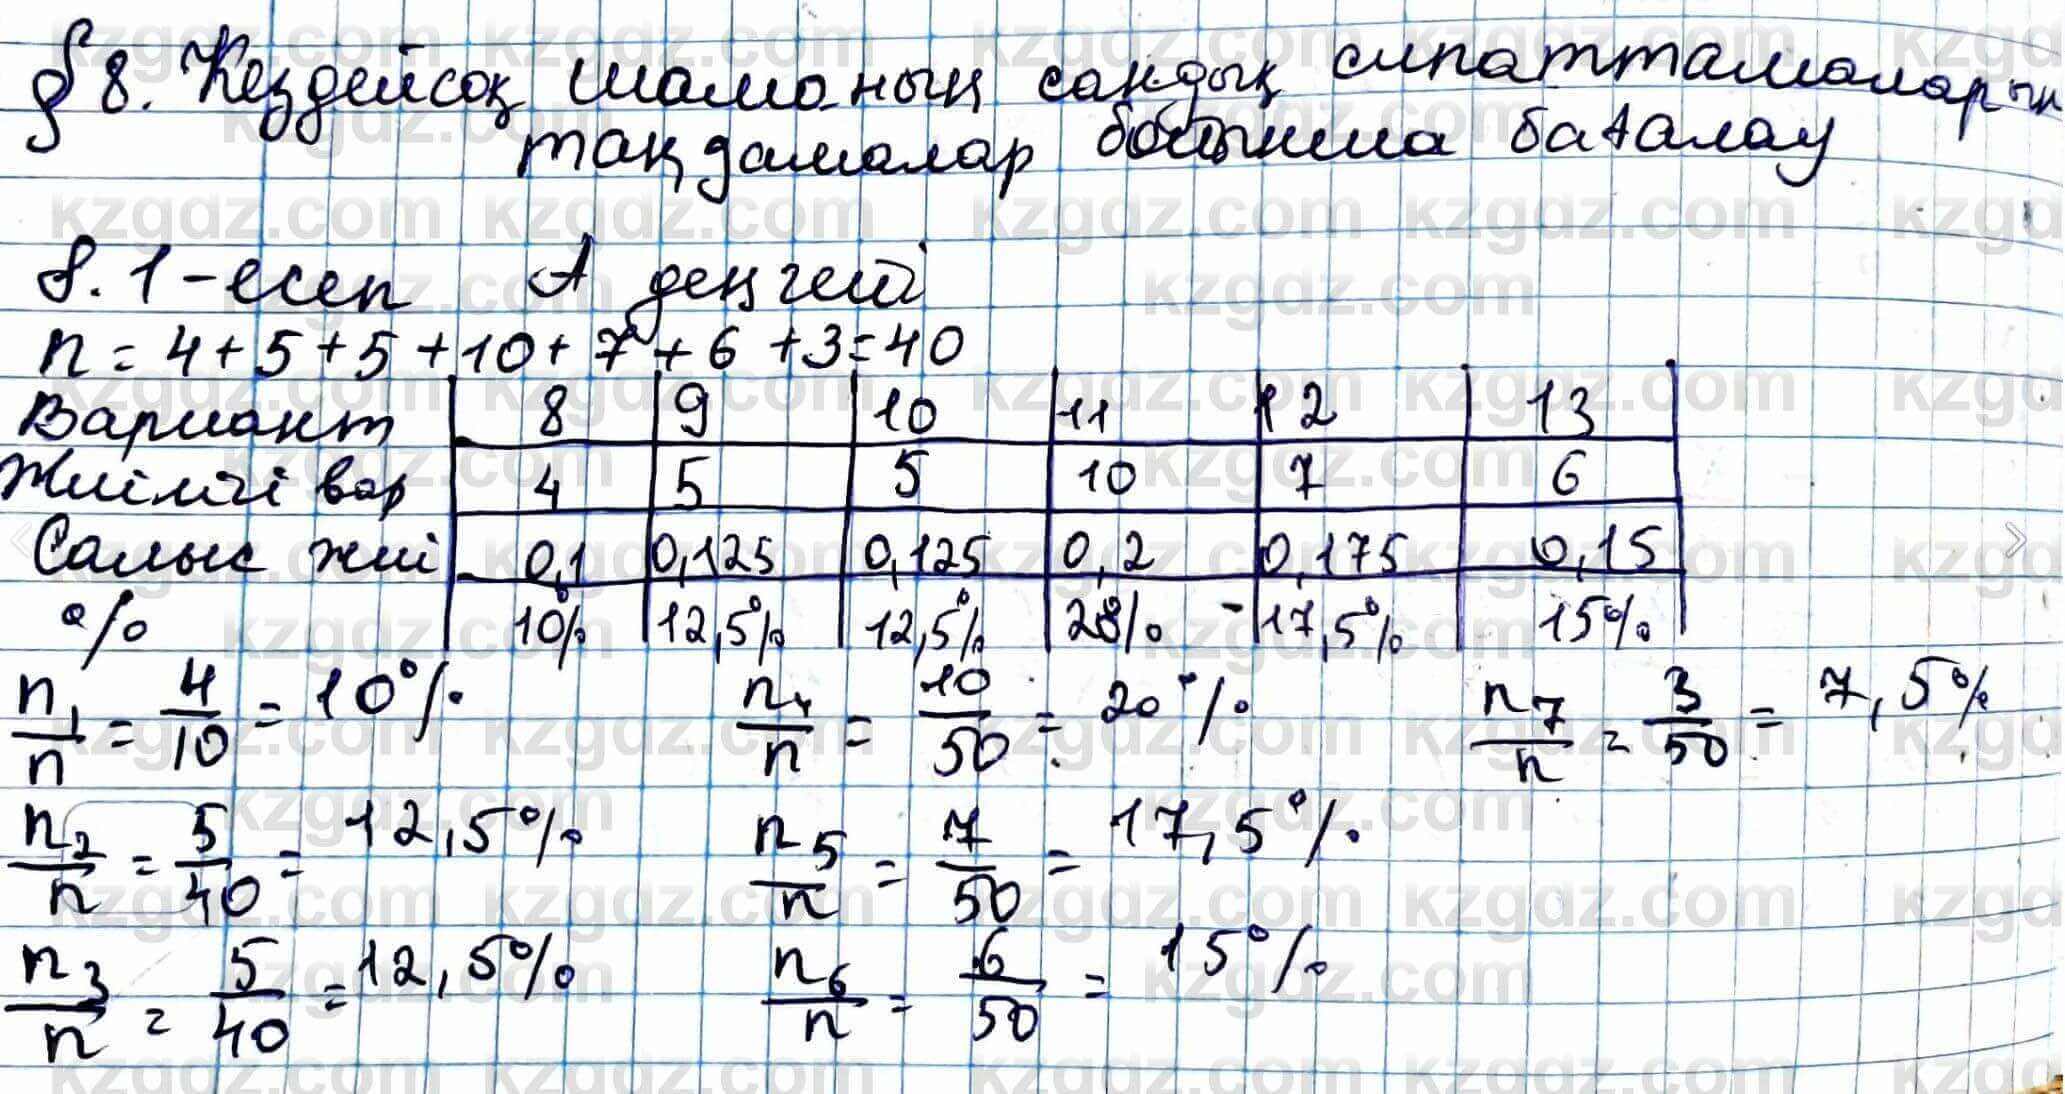 § 8. Кездейсоқ шаманың сандық сипатттамаларын
таңдамалар бойынша бағалау
8.1-есеп А деңгейі
n = 4+5+5+10+7+6+3=40
Вариант 8 9 10 11 12 13
Жиілігі вар 4 5 5 10 7 6
Салыс жиі 0,1 0,125 0,125 0,2 0,175 0,15
% 10% 12,5% 12,5% 20% 17,5% 15%
n₁/n = 4/10 = 10% n₄/n = 10/50 = 20% n₇/n = 3/50 = 7,5%
n₂/n = 5/40 = 12,5% n₅/n = 7/50 = 17,5%
n₃/n = 5/40 = 12,5% n₆/n = 6/50 = 15%
kzgdz.com